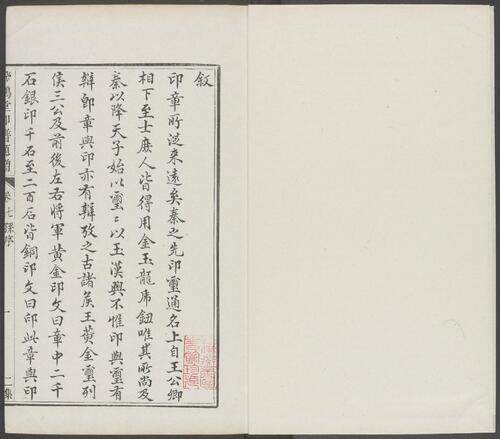 叙
印章所從来遠矣秦之先印璽通名上自王公卿
相下至士庶人皆得用金玉龍虎鈕唯其所尚及
秦以降天子始以璽〻以玉漢興不惟印與璽有
辯即章與印亦有辯攷之古諸矦王黄金璽列
侯三公及前後左右将軍黄金印文曰章中二千
石銀印千石至二百石皆銅印文曰印此章與印
卷七孫序
一
二集